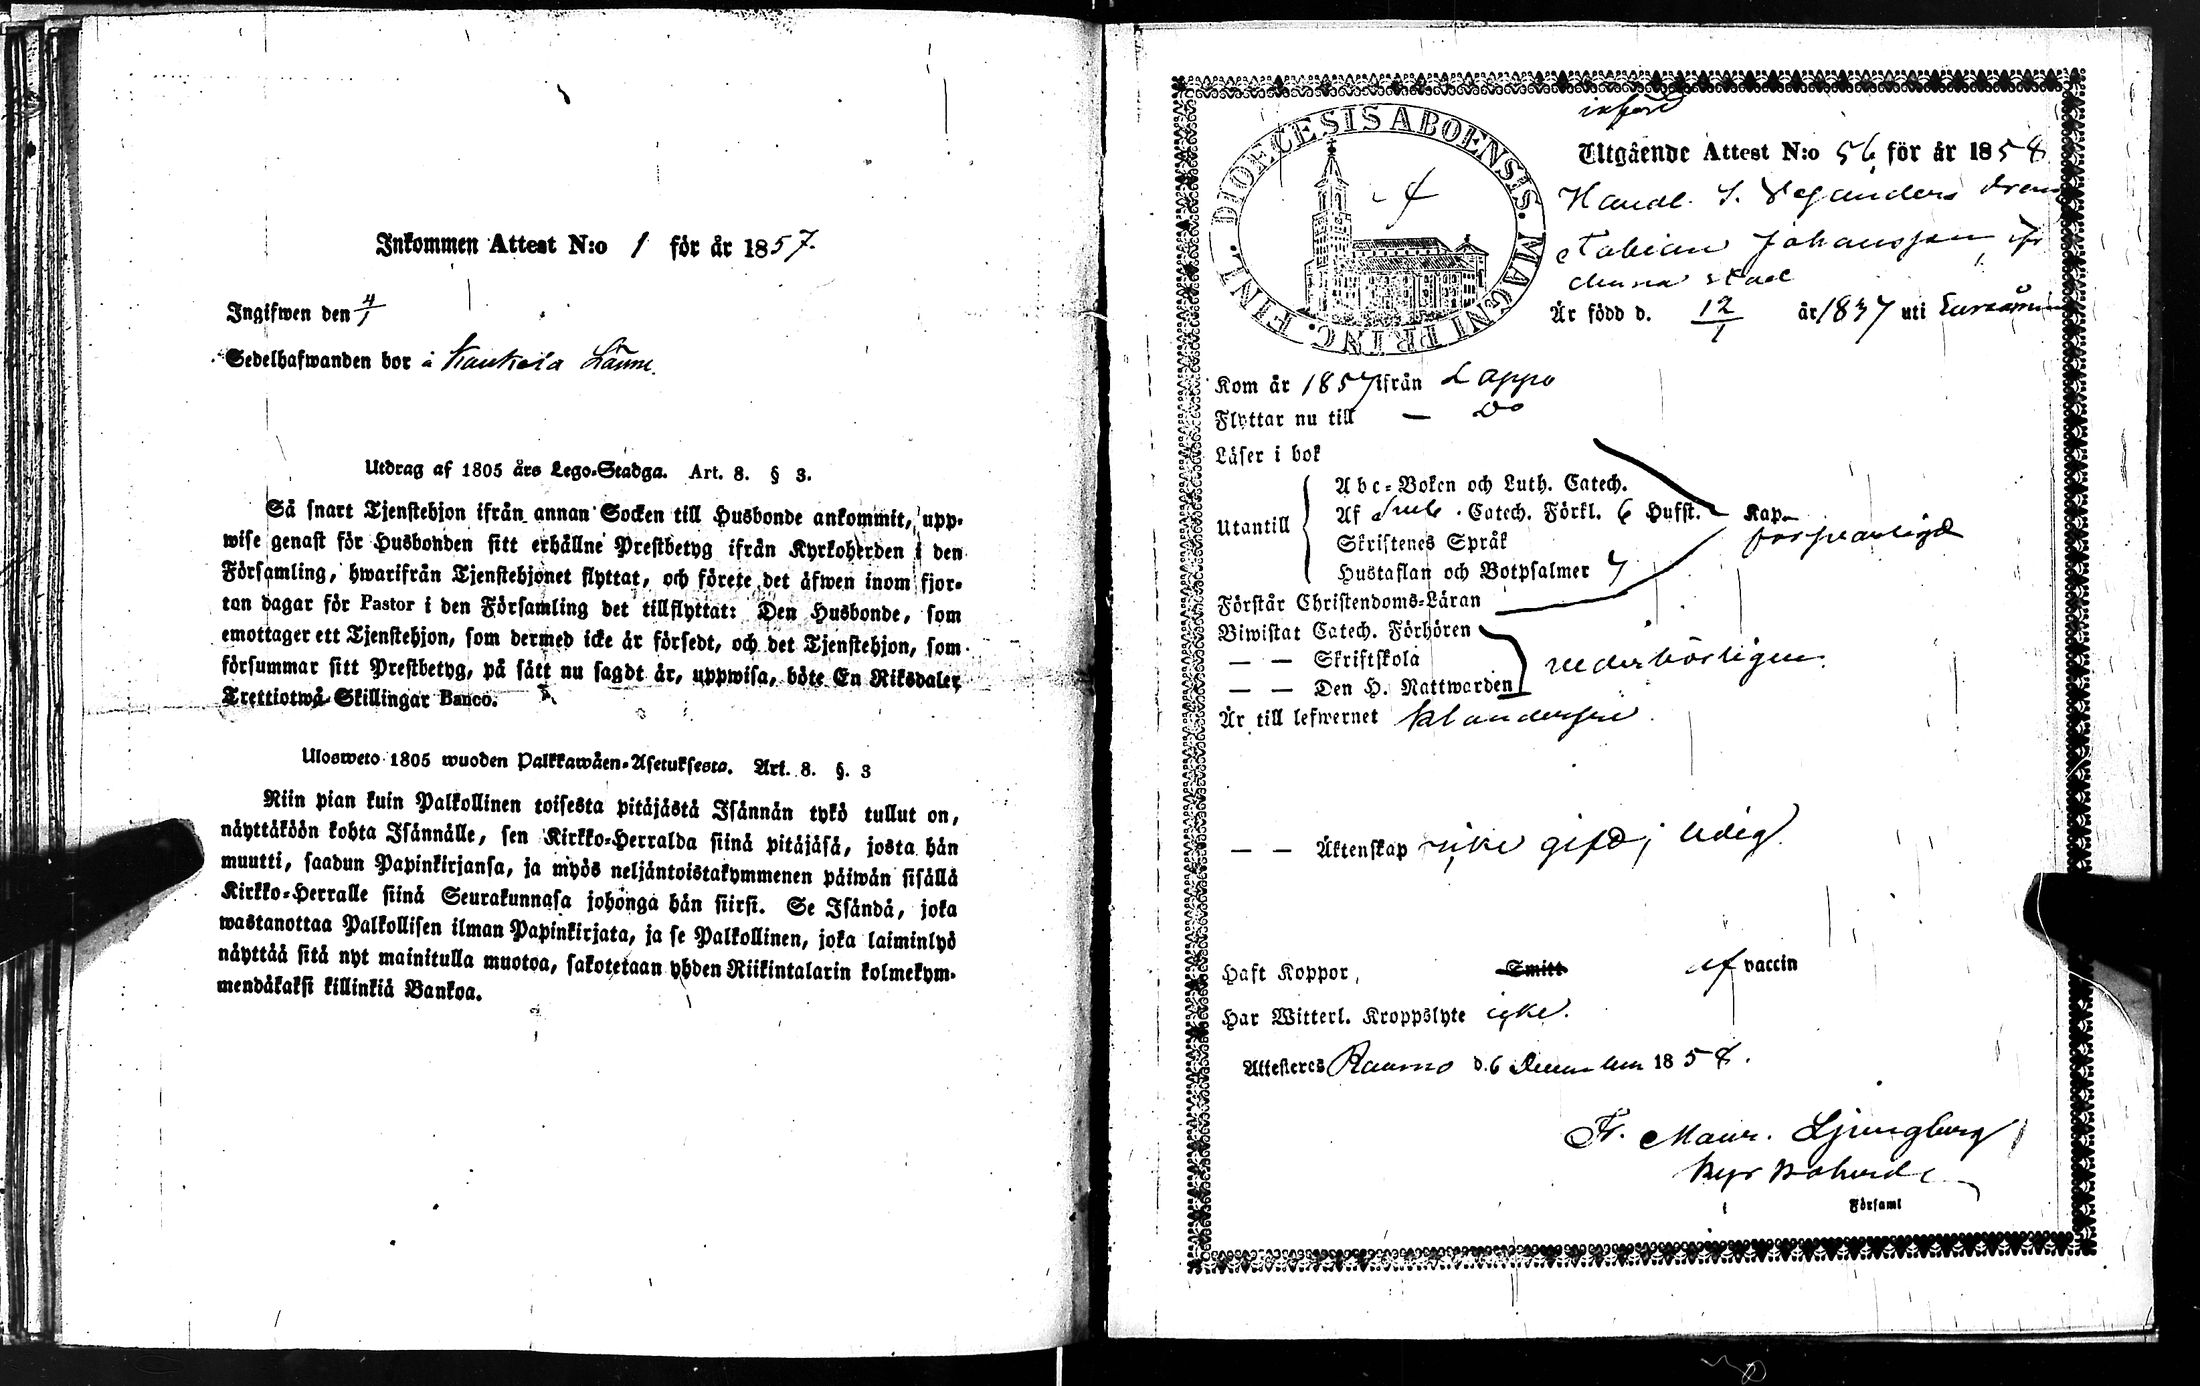 Inkommen Attest N:o 1 för år 1857.
Ingifwen den 4/1
Sedelhafwanden bor å Kaukola Länne.
Utdrag af 1805 års Lego-Stadga. Art. 8. § 3.
Så snart Tjenstehjon ifrån annan Socken till Husbonde ankommit, upp-
wise genast för Husbonden sitt erhållne Prestbetyg ifrån Kyrkoherden i den
Församling, hwarifrån Tjenstehjonet flyttat, och förete det äfwen inom fjor-
ton dagar för Pastor i den Församling det tillflyttat: Den Husbonde, som
emottager ett Tjenstehjon, som dermed icke är försedt, och det Tjenstehjon, som
försummar sitt Prestbetyg, på sätt nu sagdt är, uppwisa, böte En Riksdaler
Trettiotwå Skillingar Banco.
Ulosweto 1805 wuoden Palkkawäen-Asetuksesta. Art. 8. §. 3
Niin pian kuin Palkollinen toisesta pitäjästä Isännän tykö tullut on,
näyttäköön kohta Isännälle, sen Kirkko-Herralda siinä pitäjäsä, josta hän
muutti, saadun Papinkirjansa, ja myös neljäntoistakymmenen päiwän sisällä
Kirkko-Herralle siinä Seurakunnasa johonga hän siirsi. Se Isändä, joka
wastanottaa Palkollisen ilman Papinkirjata, ja se Palkollinen, joka laiminlyö
näyttää sitä nyt mainitulla muotoa, sakotetaan yhden Riikintalarin kolmekym-
mendäkaksi killinkiä Bankoa.
införd
DIOECESIS ABOENSIS. MAGNI PRINC. FINL.
Utgående Attest N:o 56 för år 1858
Handl. J. dreng
Fabian Johansson
stad
Är född d. 12/1 år 1837 uti Euraåminne
Kom år 1857 ifrån Lappo
Flyttar nu till — Do
Läser i bok
Utantill
Abc-Boken och Luth. Catech.
Af Catech. Förkl. 6 Hufst. Kap.
Skriftenes Språk
försvarligt
Hustaflan och Botpsalmer 7
Förstår Christendoms-Läran
Biwistat Catech. Förhören
— — Skriftskola
vederbörligen.
— — Den H. Nattwarden
Är till lefwernet klanderfri.
— — Äktenskap icke gift; ledig.
Haft Koppor, Smitt af vaccin
Har Witterl. Kroppslyte icke.
Attesteres Raumo d. 6 December 1858.
Fr. Maur. Ljungberg
Kyrkoherde
Församl